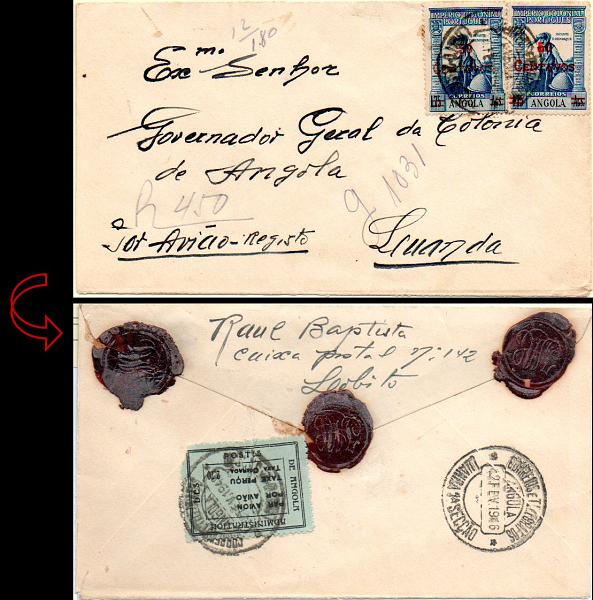 12
1.80
Exmo Senhor
Governador Geral da Colonia
de Angola
R 450
g 1031
Por Avião-Registo
Luanda
IMPERIO COLONIAL
PORTUGUES
CENTAVOS
CORREIOS
ANGOLA
IMPERIO COLONIAL
PORTUGUES
50
CENTAVOS
CORREIOS
ANGOLA
Raul Baptista
Caixa postal Nº 142
Lobito
ADMINISTRATION
DES
POSTES
DE ANGOLA
PAR AVION
POR AVIÃO
TAXE PERÇU
TAXA COBRADA
CORREIOS E TELEGRAFOS
ANGOLA
2 FEV 1946
LUANDA 1ª SECÇÃO